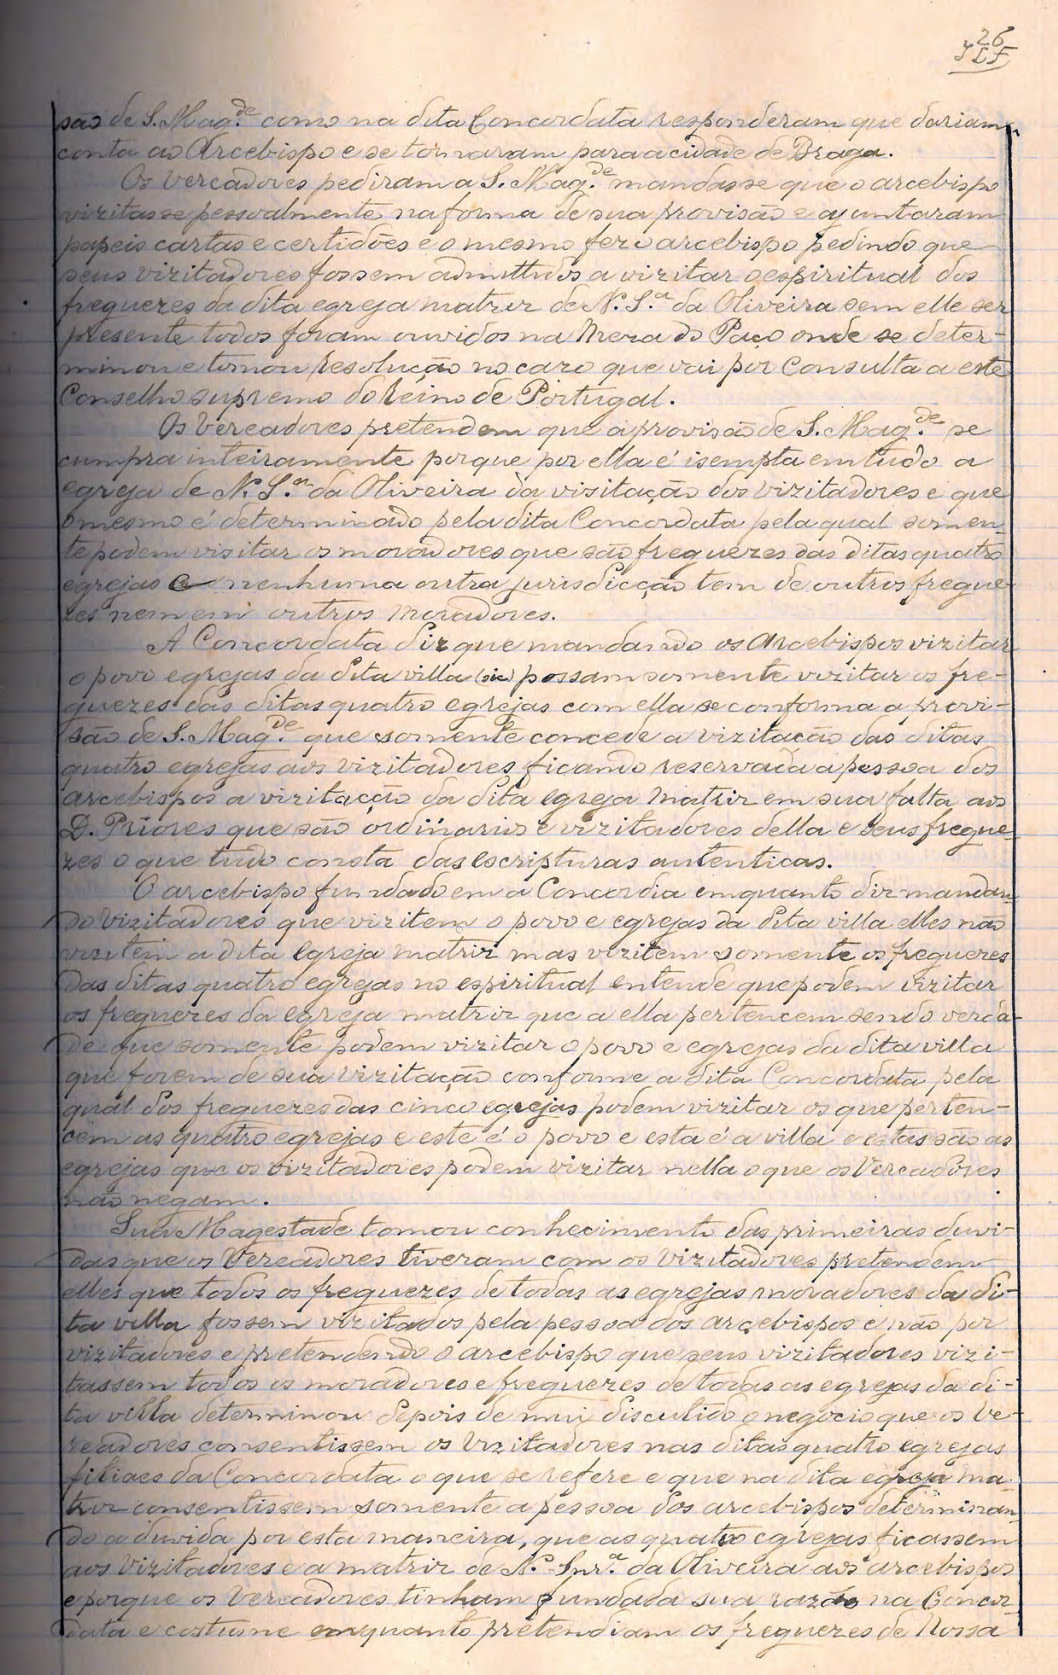 26
JLF
são de S. Mag.de como na dita Concordata responderam que dariam
conta ao Arcebispo e se tornaram para a cidade de Braga.
Os Vereadores pediram a S. Mag.de mandasse que o arcebispo
vizitasse pessoalmente na forma de sua provisão e ajuntaram
papeis cartas e certidões e o mesmo fez o arcebispo pedindo que
seus vizitadores fossem admittidos a vizitar o espiritual dos
freguezes da dita egreja matriz de N. S.ra da Oliveira sem elle ser
presente todos foram ouvidos na Meza do Paço onde se deter-
minou e tomou resolução no cazo que vai por Consulta a este
Conselho supremo do Reino de Portugal.
Os Vereadores pretendem que a provisão de S. Mag.de se
cumpra inteiramente porque por ella é isempta em tudo a
egreja de N. S.ra da Oliveira da visitação dos vizitadores e que
o mesmo é determinado pela dita Concordata pela qual somen-
te podem visitar os moradores que são freguezes das ditas quatro
egrejas e nenhuma outra jurisdicção tem de outros fregue-
zes nem em outros moradores.
A Concordata diz que mandando os Arcebispos vizitar
o povo egrejas da dita villa (sic) possam somente vizitar os fre-
guezes das ditas quatro egrejas com ella se conforma a provi-
são de S. Mag.de que somente concede a vizitação das ditas
quatro egrejas aos vizitadores ficando reservada a pessoa dos
arcebispos a vizitação da dita egreja matriz em sua falta aos
D. Priores que são ordinarios e vizitadores della e seus fregue-
zes o que tudo consta das escripturas autenticas.
O arcebispo fundado em a Concordia emquanto diz mandan-
do Vizitadores que vizitem o povo e egrejas da dita villa elles não
vizitem a dita Egreja matriz mas vizitem somente os freguezes
das ditas quatro egrejas no espiritual entende que podem vizitar
os freguezes da egreja matriz que a ella pertencem sendo verda-
de que somente podem vizitar o povo e egrejas da dita villa
que forem de sua vizitação conforme a dita Concordata pela
qual dos freguezes das cinco egrejas podem vizitar os que perten-
cem as quatro egrejas e este é o povo e esta é a villa e estas são as
egrejas que os vizitadores podem vizitar nella o que os Vereadores
não negam.
Sua Magestade tomou conhecimento das primeiras duvi-
das que os Vereadores tiveram com os vizitadores pretendem
elles que todos os freguezes de todas as egrejas moradores da di-
ta villa fossem vizitados pela pessoa dos arcebispos e não por
vizitadores e pretendendo o arcebispo que seus vizitadores vizi-
tassem todos os moradores e freguezes de todas as egrejas da di-
ta villa determinou depois de mui discutido o negocio que os Ve-
readores consentissem os Vizitadores nas ditas quatro egrejas
filiaes da Concordata o que se refere e que na dita egreja ma-
triz consentissem somente a pessoa dos arcebispos determinan-
do a duvida por esta maneira, que as quatro egrejas ficassem
aos Vizitadores e a matriz de N. Snr.a da Oliveira aos arcebispos
e porque os Vereadores tinham fundada sua razão na Concor-
data e costume emquanto pretendiam os freguezes de Nossa